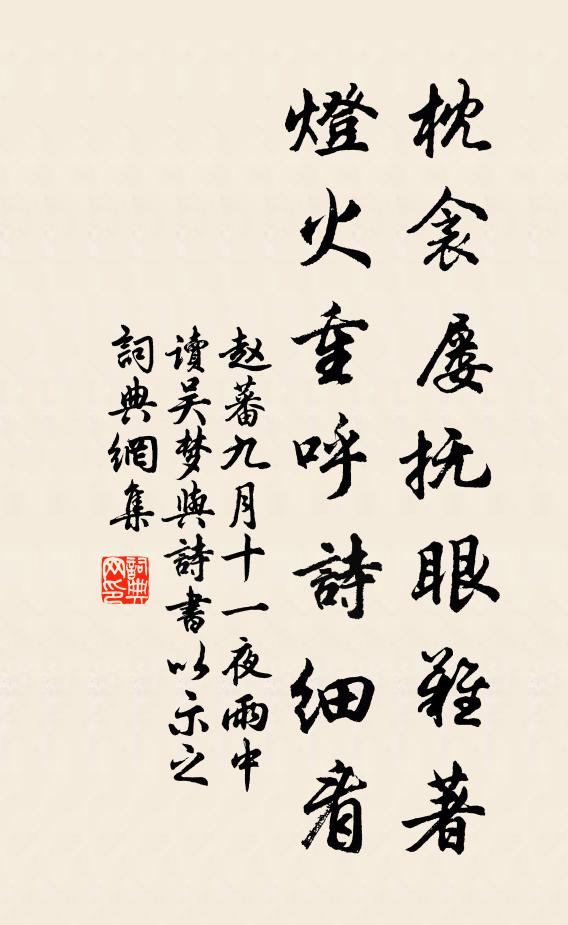 枕衾屡抚眼难著
燈火重呼詩细看
赵蕃九月十一夜雨中
讀吴梦與詩書以示之
詞典網集
詞典网印